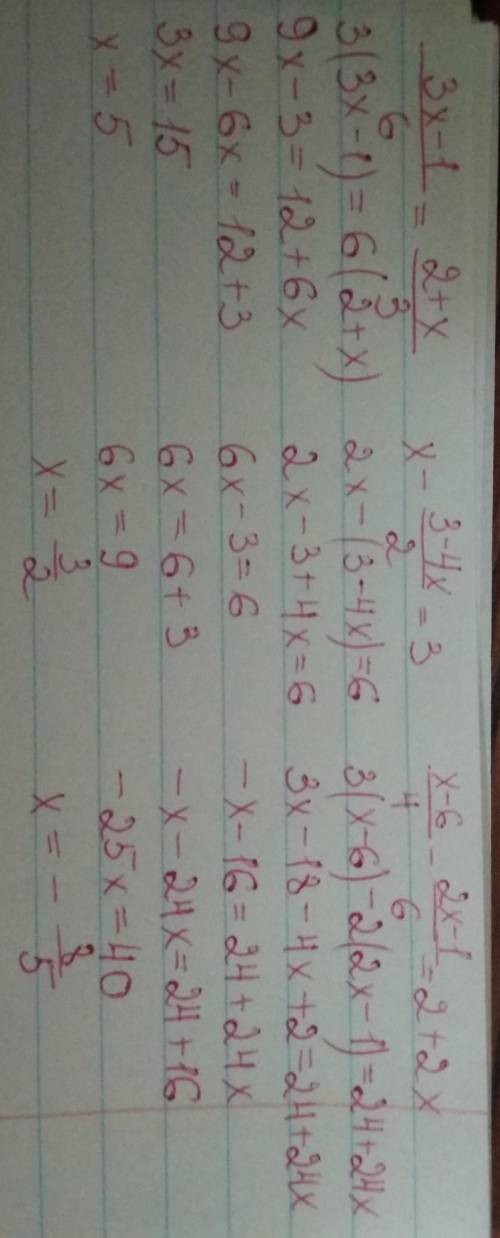 (3x-1)/6 = (2+x)/3
3(3x-1) = 6(2+x)
9x-3 = 12+6x
9x-6x = 12+3
3x = 15
x = 5
x - (3-4x)/2 = 3
2x-(3-4x)=6
2x-3+4x=6
6x-3=6
6x=6+3
6x=9
x = 3/2
(x-6)/4 - (2x-1)/6 = 2+2x
3(x-6)-2(2x-1)=24+24x
3x-18-4x+2=24+24x
-x-16=24+24x
-x-24x=24+16
-25x=40
x = - 8/5